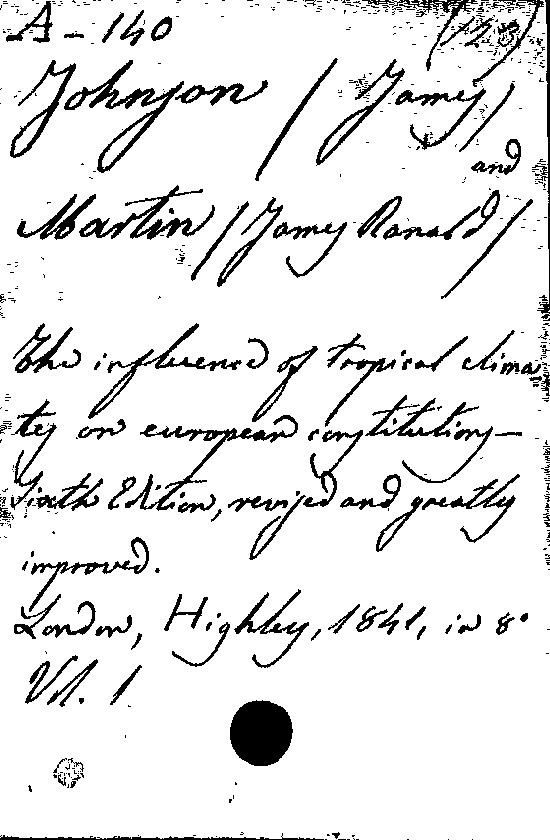 A - 140 (123)
Johnson / James /
and
Martin / James Ranald /
The influence of tropical clima
tes on european constitutions —
Sixth Edition, revised and greatly
improved.
London, Highley, 1841, in 8°
Vol. 1